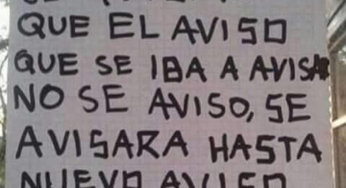 QUE EL AVISO
QUE SE IBA A AVISAR
NO SE AVISO, SE
AVISARA HASTA
NUEVO AVISO